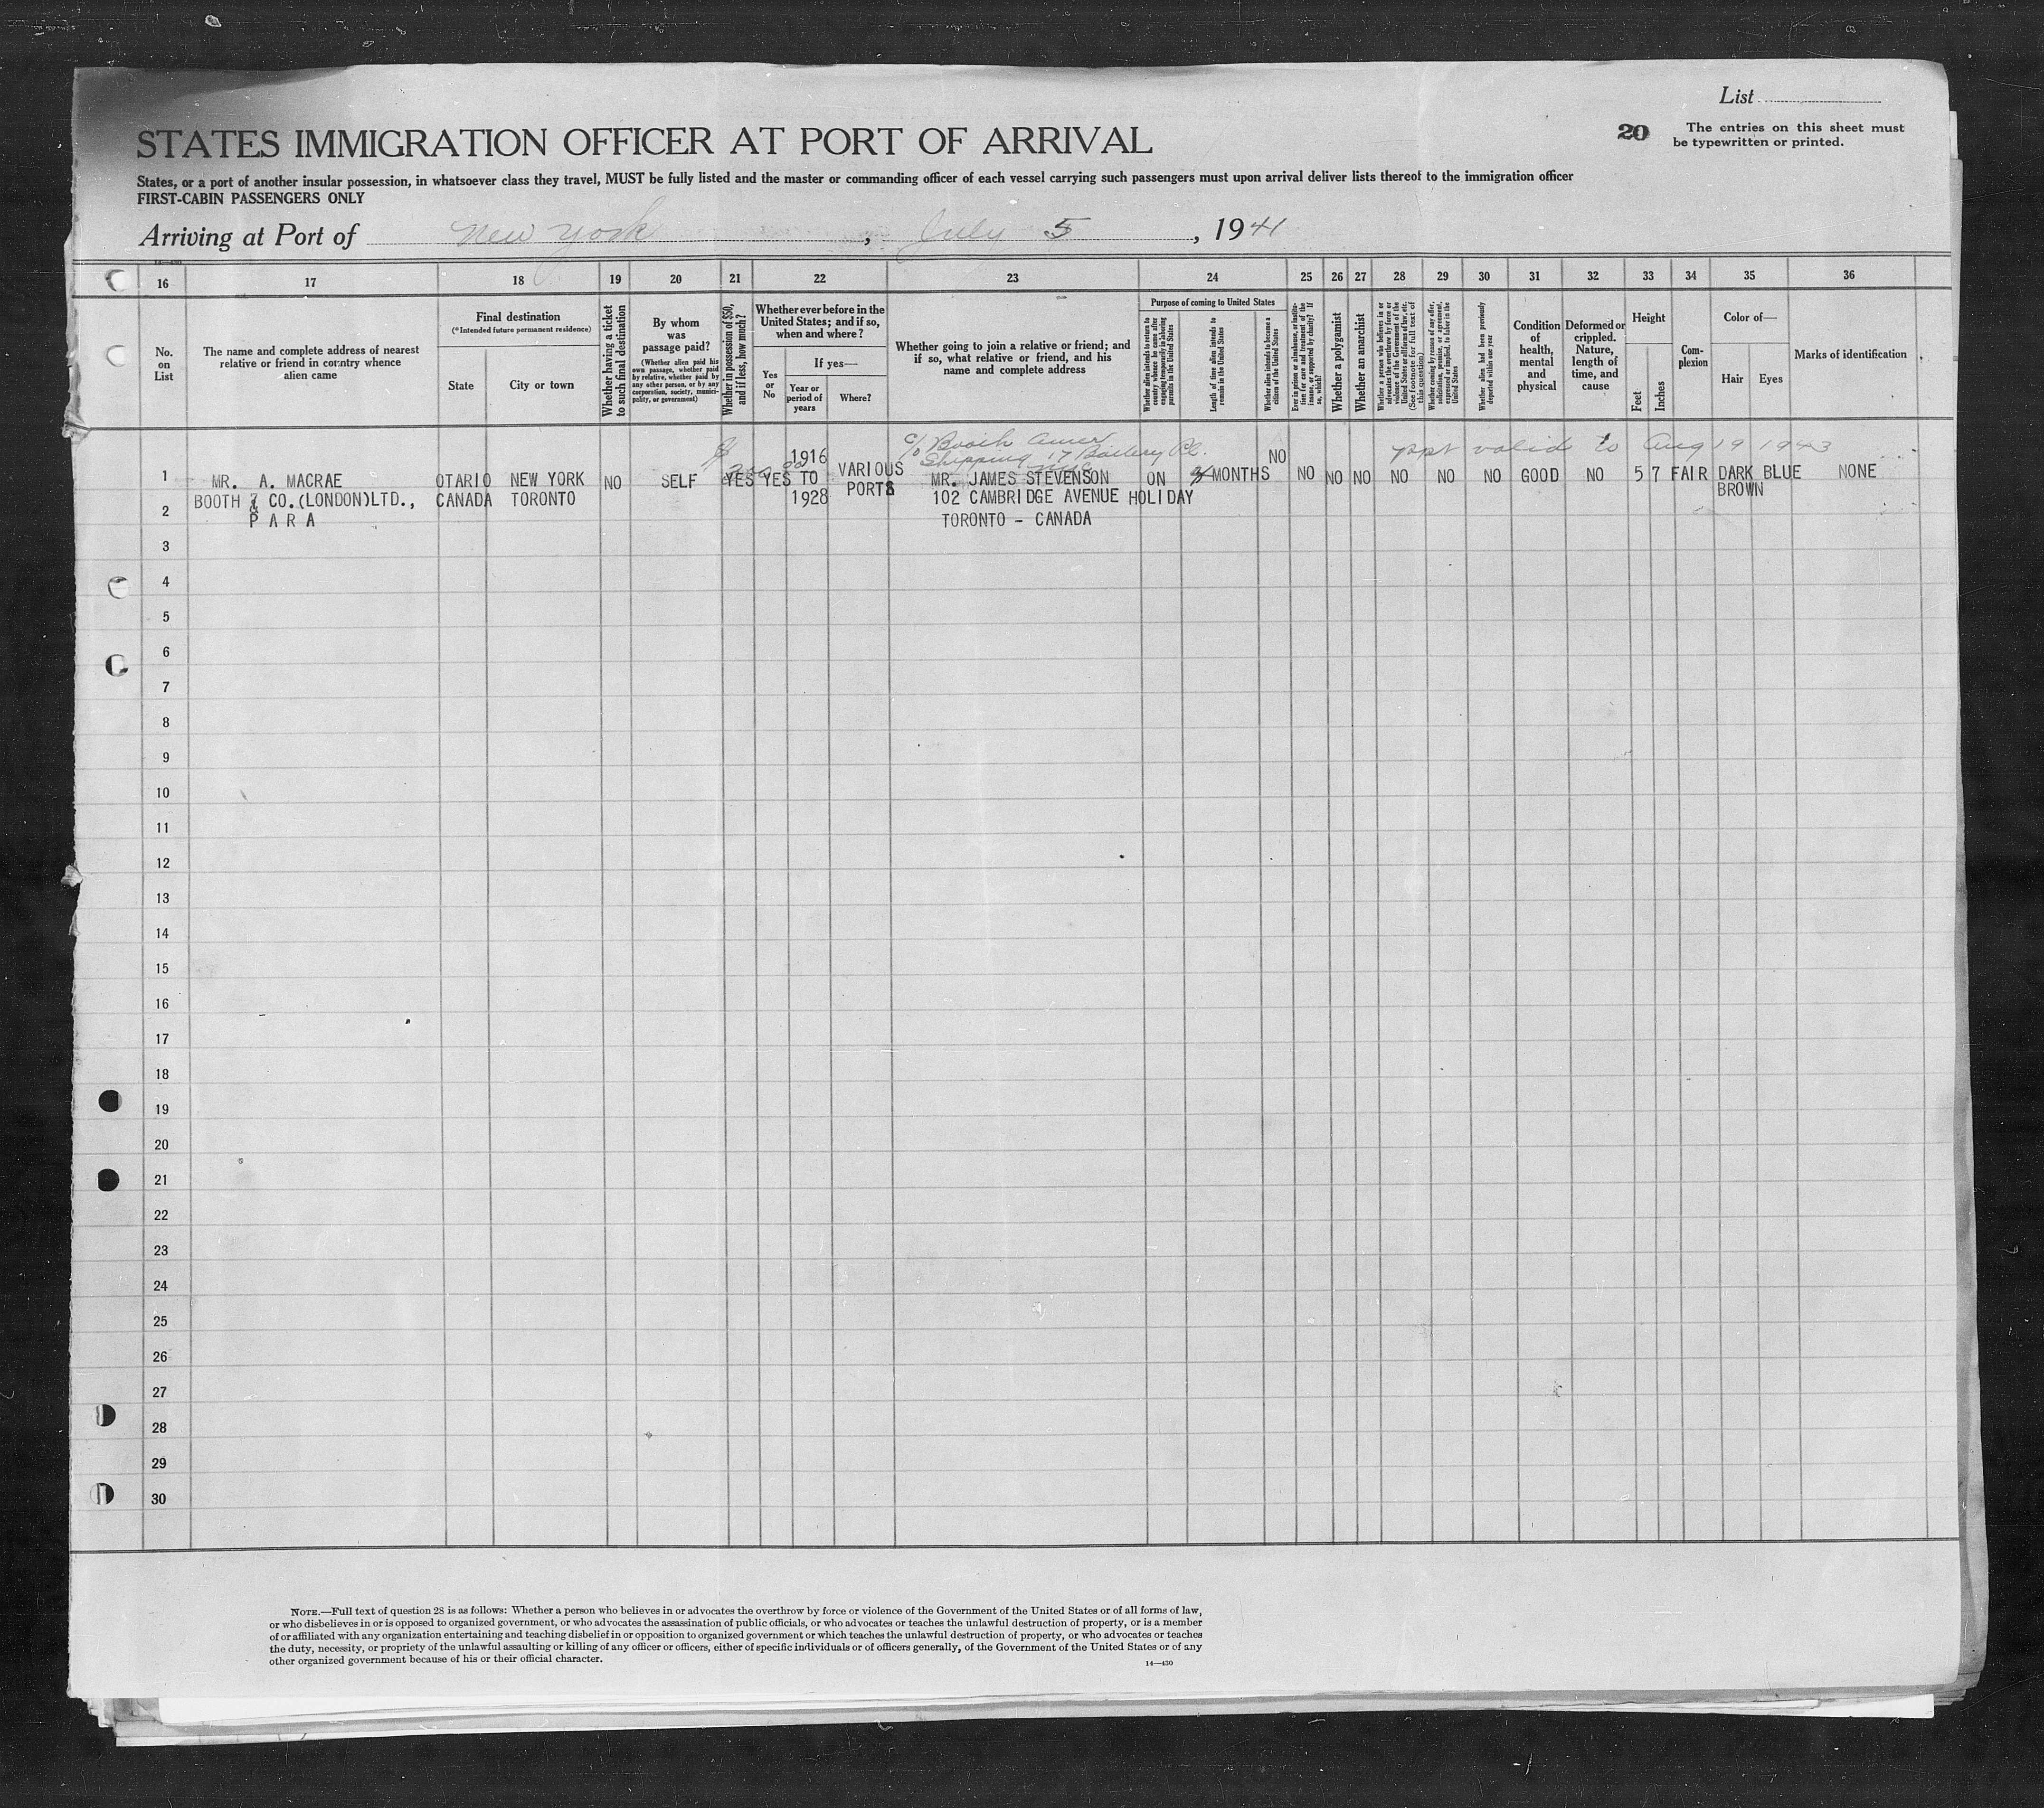 List
20 The entries on this sheet must
be typewritten or printed.
STATES IMMIGRATION OFFICER AT PORT OF ARRIVAL
States, or a port of another insular possession, in whatsoever class they travel, MUST be fully listed and the master or commanding officer of each vessel carrying such passengers must upon arrival deliver lists thereof to the immigration officer
FIRST-CABIN PASSENGERS ONLY
Arriving at Port of New York, July 5, 1941
14—430
16 17 18 19 20 21 22 23 24 25 26 27 28 29 30 31 32 33 34 35 36
No.
on
List
The name and complete address of nearest
relative or friend in country whence
alien came
Final destination
(*Intended future permanent residence)
State
City or town
Whether having a ticket
to such final destination
By whom
was
passage paid?
(Whether alien paid his
own passage, whether paid
by relative, whether paid by
any other person, or by any
corporation, society, munici-
pality, or government)
Whether in possession of $50,
and if less, how much?
Whether ever before in the
United States; and if so,
when and where?
Yes
or
No
If yes—
Year or
period of
years
Where?
Whether going to join a relative or friend; and
if so, what relative or friend, and his
name and complete address
Purpose of coming to United States
Whether alien intends to return to
country whence he came after
engaging temporarily in laboring
pursuits in the United States
Length of time alien intends to
remain in the United States
Whether alien intends to become a
citizen of the United States
Ever in prison or almshouse, or institu-
tion for care and treatment of the
insane, or supported by charity? If
so, which?
Whether a polygamist
Whether an anarchist
Whether a person who believes in or
advocates the overthrow by force or
violence of the Government of the
United States or all forms of law, etc.
(See footnote for full text of
this question)
Whether coming by reason of any offer,
solicitation, promise, or agreement,
expressed or implied, to labor in the
United States
Whether alien had been previously
deported within one year
Condition
of
health,
mental
and
physical
Deformed or
crippled.
Nature,
length of
time, and
cause
Height
Feet
Inches
Com-
plexion
Color of—
Hair
Eyes
Marks of identification
c/o Booth Amer
Shipping 17 Battery Pl.
NYC
ppt valid to Aug 19 1943
1 MR. A. MACRAE OTARIO NEW YORK NO SELF $200.00 YES YES 1916 TO VARIOUS MR. JAMES STEVENSON ON MONTHS NO NO NO NO NO NO NO GOOD NO 5 7 FAIR DARK BLUE NONE
BOOTH & CO.(LONDON)LTD., CANADA TORONTO 1928 PORTS 102 CAMBRIDGE AVENUE HOLIDAY BROWN
2 P A R A TORONTO - CANADA
3
4
5
6
7
8
9
10
11
12
13
14
15
16
17
18
19
20
21
22
23
24
25
26
27
28
29
30
NOTE.—Full text of question 28 is as follows: Whether a person who believes in or advocates the overthrow by force or violence of the Government of the United States or of all forms of law,
or who disbelieves in or is opposed to organized government, or who advocates the assassination of public officials, or who advocates or teaches the unlawful destruction of property, or is a member
of or affiliated with any organization entertaining and teaching disbelief in or opposition to organized government or which teaches the unlawful destruction of property, or who advocates or teaches
the duty, necessity, or propriety of the unlawful assaulting or killing of any officer or officers, either of specific individuals or of officers generally, of the Government of the United States or of any
other organized government because of his or their official character.
14—430